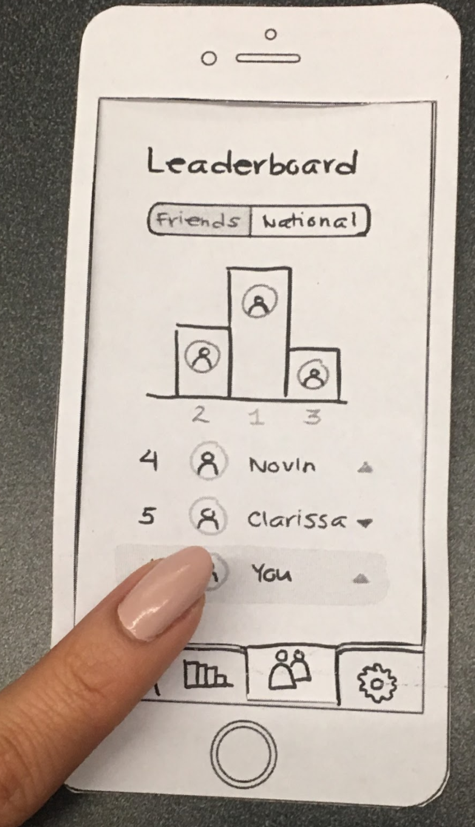 Leaderboard
Friends National
2 1 3
4 Novin
5 Clarissa
You